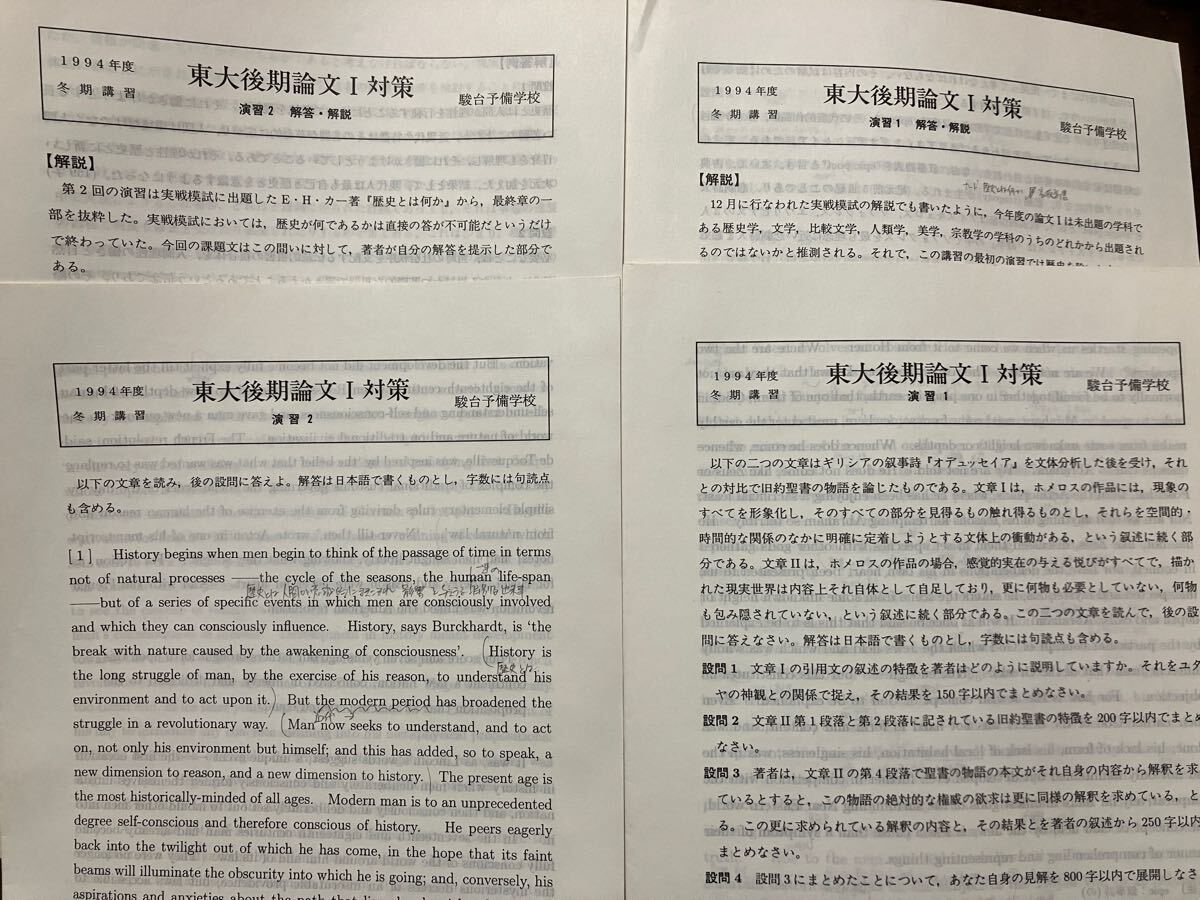 1994年度
冬期講習
東大後期論文Ⅰ対策
演習2 解答・解説
駿台予備学校
【解説】
第2回の演習は実戦模試に出題したE・H・カー著『歴史とは何か』から，最終章の一
部を抜粋した。実戦模試においては，歴史が何であるかは直接の答が不可能だというだけ
で終わっていた。今回の課題文はこの問いに対して，著者が自分の解答を提示した部分で
ある。
1994年度
冬期講習
東大後期論文Ⅰ対策
演習1 解答・解説
駿台予備学校
【解説】
12月に行なわれた実戦模試の解説でも書いたように，今年度の論文Ⅰは未出題の学科で
ある歴史学，文学，比較文学，人類学，美学，宗教学の学科のうちのどれかから出題され
るのではないかと推測される。それで，この講習の最初の演習では歴史を
1994年度
冬期講習
東大後期論文Ⅰ対策
演習2
駿台予備学校
以下の文章を読み，後の設問に答えよ。解答は日本語で書くものとし，字数には句読点
も含める。
[1] History begins when men begin to think of the passage of time in terms
not of natural processes ——the cycle of the seasons, the human life-span
——but of a series of specific events in which men are consciously involved
and which they can consciously influence. History, says Burckhardt, is ‘the
break with nature caused by the awakening of consciousness’. (History is
歴史とは
the long struggle of man, by the exercise of his reason, to understand his
environment and to act upon it.) But the modern period has broadened the
struggle in a revolutionary way. (Man now seeks to understand, and to act
on, not only his environment but himself; and this has added, so to speak, a
new dimension to reason, and a new dimension to history.) The present age is
the most historically-minded of all ages. Modern man is to an unprecedented
degree self-conscious and therefore conscious of history. He peers eagerly
back into the twilight out of which he has come, in the hope that its faint
beams will illuminate the obscurity into which he is going; and, conversely, his
aspirations and anxieties about the path that
1994年度
冬期講習
東大後期論文Ⅰ対策
演習1
駿台予備学校
以下の二つの文章はギリシアの叙事詩『オデュッセイア』を文体分析した後を受け，それ
との対比で旧約聖書の物語を論じたものである。文章Ⅰは，ホメロスの作品には，現象の
すべてを形象化し，そのすべての部分を見得るもの触れ得るものとし，それらを空間的・
時間的な関係のなかに明確に定着しようとする文体上の衝動がある，という叙述に続く部
分である。文章Ⅱは，ホメロスの作品の場合，感覚的実在の与える悦びがすべてで，描か
れた現実世界は内容上それ自体として自足しており，更に何物も必要としていない，何物
も包み隠されていない，という叙述に続く部分である。この二つの文章を読んで，後の設
問に答えなさい。解答は日本語で書くものとし，字数には句読点も含める。
設問1 文章Ⅰの引用文の叙述の特徴を著者はどのように説明していますか。それをユダ
ヤの神観との関係で捉え，その結果を150字以内でまとめなさい。
設問2 文章Ⅱの第1段落と第2段落に記されている旧約聖書の特徴を200字以内でまとめ
なさい。
設問3 著者は，文章Ⅱの第4段落で聖書の物語の本文がそれ自身の内容から解釈を求め
ているとすると，この物語の絶対的な権威の欲求は更に同様の解釈を求めている，と
る。この更に求められている解釈の内容と，その結果とを著者の叙述から250字以内
まとめなさい。
設問4 設問3にまとめたことについて，あなた自身の見解を800字以内で展開しなさ